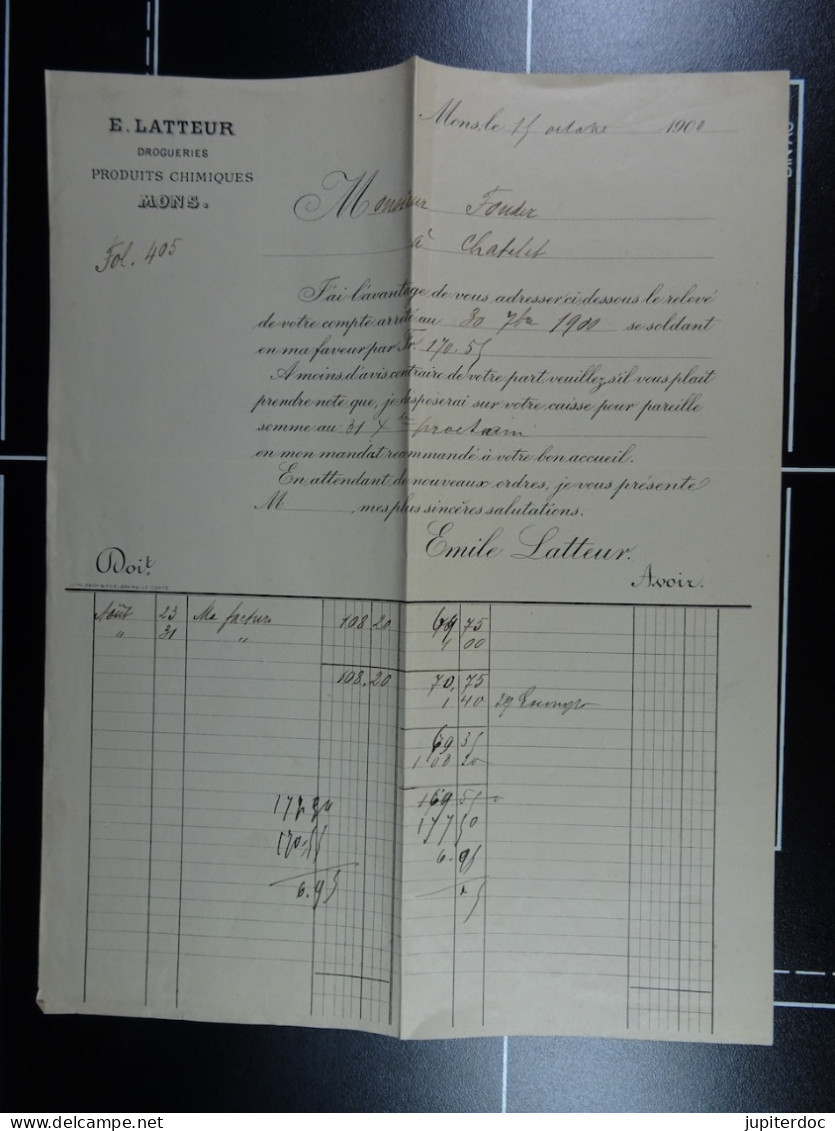 E. LATTEUR
DROGUERIES
PRODUITS CHIMIQUES
MONS.
Fol. 405
Mons, le 15 octobre 1900
Monsieur Fonder
à Chatelet
J'ai l'avantage de vous adresser ci dessous le relevé
de votre compte arrêté au 30 7bre 1900 se soldant
en ma faveur par Fr. 170.55
A moins d'avis contraire de votre part veuillez, s'il vous plaît
prendre note que, je disposerai sur votre caisse pour pareille
somme au 31 Xbre prochain
en mon mandat recommandé à votre bon accueil.
En attendant de nouveaux ordres, je vous présente
M , mes plus sincères salutations.
Emile Latteur.
Doit. Avoir.
Août 23 Ma facture 108 20 75
" 31 " 00
108.20 70.75
1 40
69 35
100 20
169 55
177 50
170.55
6.95
6.95
jupiterdoc.com